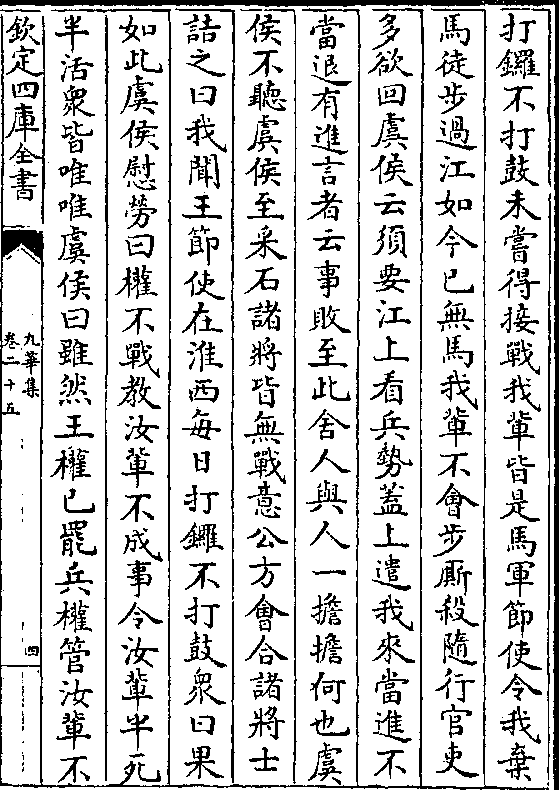 打鑼不打鼓未嘗得接戰我軰皆是馬軍節使令我棄
馬徒步過江如今已無馬我軰不會步厮殺隨行官吏
多欲回虞侯云須要江上看兵勢葢上遣我來當進不
當退有進言者云事敗至此舍人與人一擔擔何也虞
侯不聽虞侯至采石諸將皆無戰意公方會合諸將士
詰之曰我聞王節使在淮西每日打鑼不打鼓衆曰果
如此虞侯慰勞曰權不戰教汝軰不成事令汝軰半死
半活衆皆唯唯虞侯曰雖然王權已罷兵權管汝軰不
欽定四庫全書
九華集
卷二十五
四